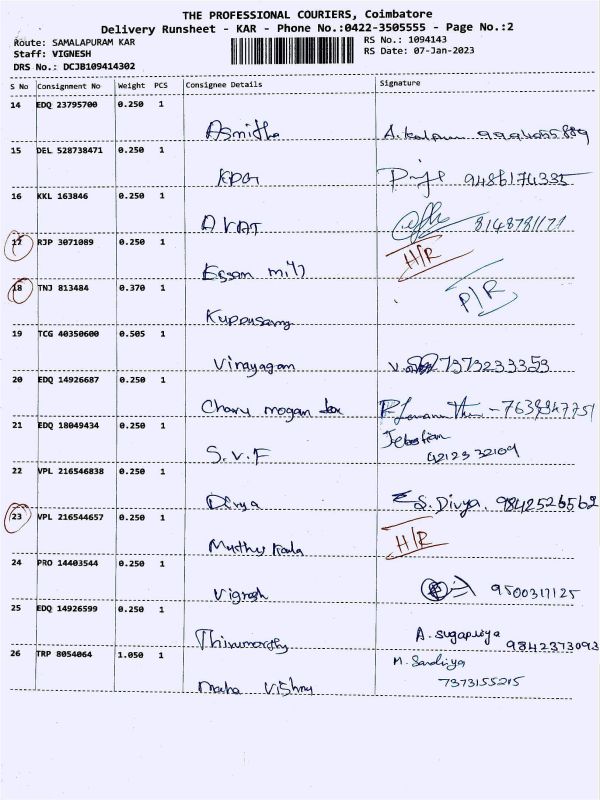 THE PROFESSIONAL COURIERS, Coimbatore
Delivery Runsheet - KAR - Phone No.:0422-3505555 - Page No.:2
Route: SAMALAPURAM KAR
Staff: VIGNESH
DRS No.: DCJB109414302
RS No.: 1094143
RS Date: 07-Jan-2023
S No Consignment No Weight PCS Consignee Details Signature
14 EDQ 23795700 0.250 1
Asmitha
15 DEL 528738471 0.250 1
KPG 9486174335
16 KKL 163846 0.250 1
8148781171
17 RJP 3071089 0.250 1 H/R
Essan mill
18 TNJ 813484 0.370 1 P/R
Kuppusamy
19 TCG 40350600 0.505 1
Vinayagam 7373233353
20 EDQ 14926687 0.250 1
Charu mogan
21 EDQ 18049434 0.250 1
S.V.F 42123 32109
22 VPL 216546838 0.250 1
Divya S. Divya. 9842526562
23 VPL 216544657 0.250 1 H/R
Muthu
24 PRO 14403544 0.250 1
Vignesh 9500317125
25 EDQ 14926599 0.250 1
Thirumorthy A. sugapriya 9842373093
26 TRP 8054064 1.050 1 M. Sandiya
Maha Vishnu 7373155215